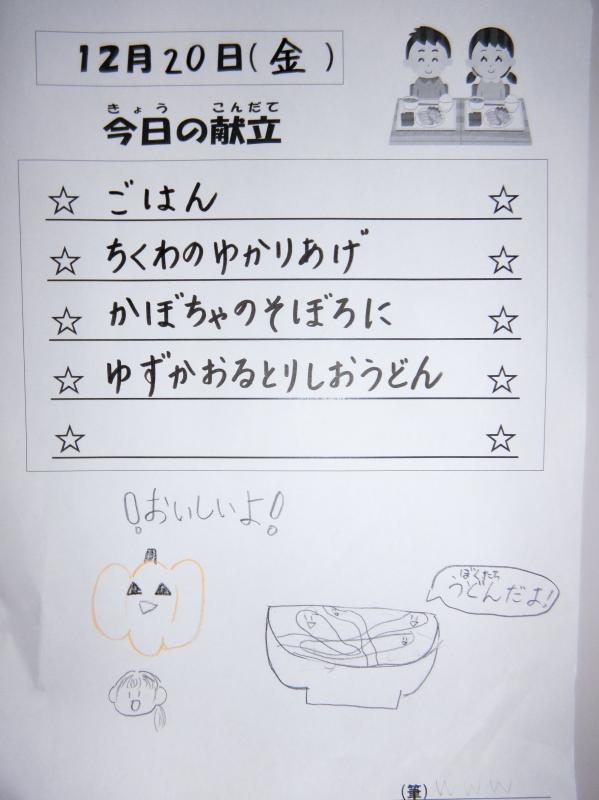 12月20日(金)
きょう こんだて
今日の献立
☆ ごはん ☆
☆ ちくわのゆかりあげ ☆
☆ かぼちゃのそぼろに ☆
☆ ゆずかおるとりしおうどん ☆
☆ ☆
!おいしいよ!
ぼくたち
うどんだよ!
(筆) WWW